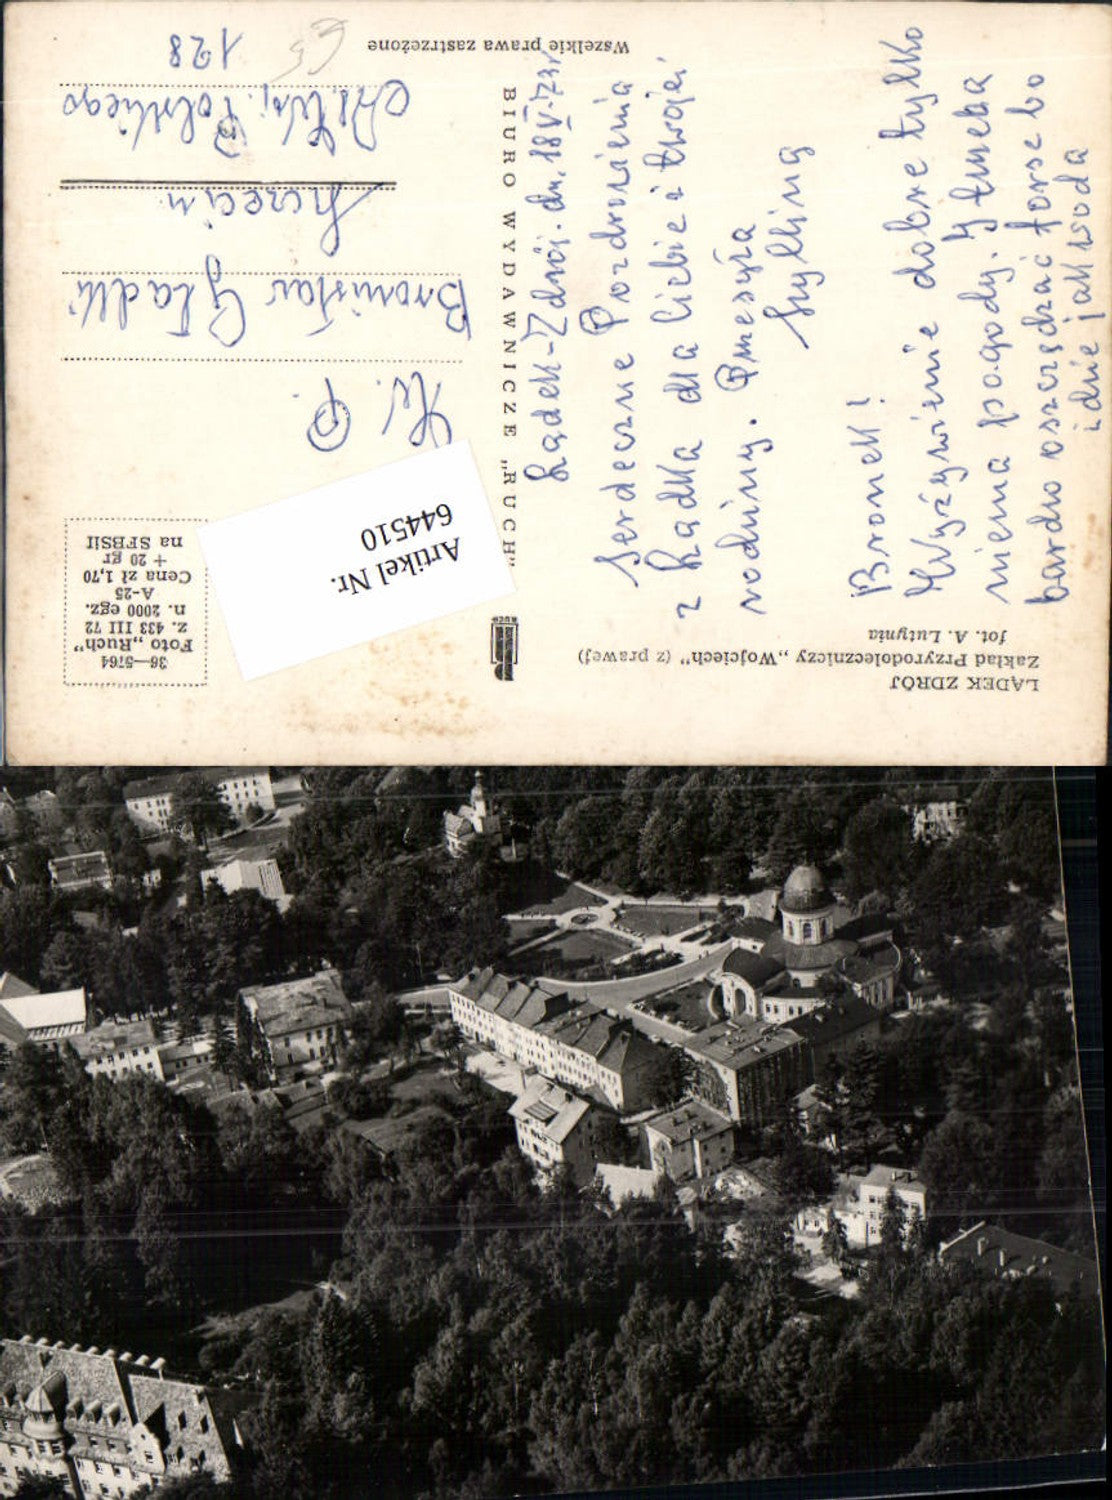 LĄDEK ZDRÓJ
Zakład Przyrodoleczniczy „Wojciech" (z prawej)
fot. A. Lutynia
Lądek-Zdrój. dn. 18 V. 73r
Serdeczne Pozdrowienia
z Lądka dla Ciebie i twojej
rodziny. Przesyła
Bronek!
Wyżywienie dobre tylko
niema pogody. I trzeba
bardzo oszczędzać forse bo
idzie jak woda
BIURO WYDAWNICZE „RUCH"
RUCH
Wszelkie prawa zastrzeżone
36—5764
Foto „Ruch"
z. 433 III 72
n. 2000 egz.
A-25
Cena zł 1,70
+ 20 gr
na SFBSiI
Artikel Nr.
644510
W. P.
Bronisław Gładki
Szczecin
Al. Woj. Polskiego
128